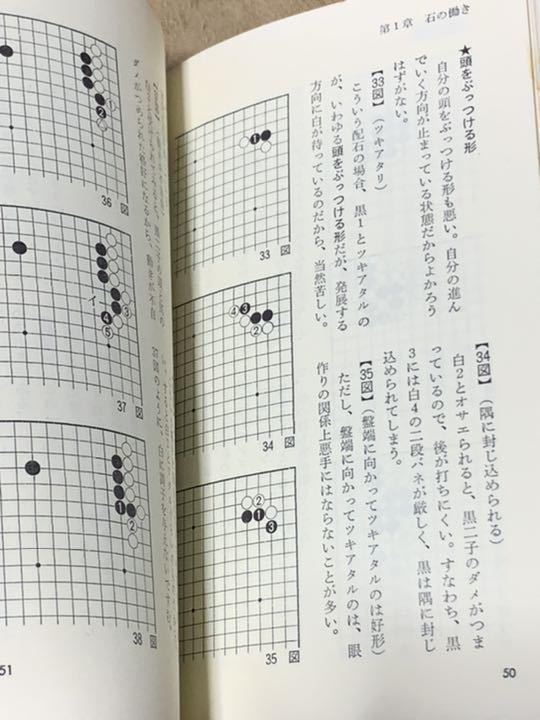 第1章 石の働き
★頭をぶっつける形
自分の頭をぶっつける形も悪い。自分の進ん
でいく方向が止まっている状態だからよかろう
はずがない。
【33図】(ツキアタリ)
こういう配石の場合、黒1とツキアタルの
が、いわゆる頭をぶっつける形だが、発展する
方向に白が待っているのだから、当然苦しい。
【34図】(隅に封じ込められる)
白2とオサエられると、黒二子のダメがつま
っているので、後が打ちにくい。すなわち、黒
3には白4の二段バネが厳しく、黒は隅に封じ
込められてしまう。
【35図】(盤端に向かってツキアタルのは好形)
ただし、盤端に向かってツキアタルのは、眼
作りの関係上悪手にはならないことが多い。
1
33 図
4
3
2
34 図
2
1
3
35 図
50
2
36 図
イ
3
4
5
37 図
1
2
38 図
ダメがつめられた
になるから、働きが不自
37図のように、白に調子を与えない
51